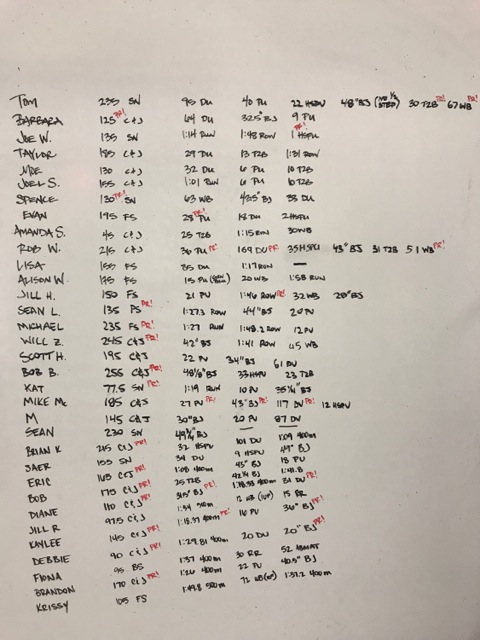 TOM 235 SN 95 DU 40 PU 22 HSPU 48" BJ (NO 1/2 STEP) 30 T2B PR! 67 WB PR!
BARBARA 125 PR! C&J 64 DU 32.5" BJ 9 PU
JOE W. 135 SN 1:14 RUN 1:48 ROW 1 HSPU PR!
TAYLOR 185 C&J 29 DU 13 T2B 1:31 ROW
MOE 130 C&J 32 DU 6 PU 10 T2B
JOEL S. 155 C&J 1:01 RUN 6 PU 10 T2B
SPENCE 130 PR! SN 63 WB 42.5" BJ 38 DU
EVAN 195 FS 28 PR! PU 18 DU 2 HSPU
AMANDA S. 95 C&J 25 T2B 1:15 RUN 30 WB
ROB W. 215 C&J 36 PU PR! 169 DU PR! 35 HSPU 43" BJ 31 T2B 51 WB PR!
LISA 155 FS 85 DU 1:17 RUN —
ALISON W. 175 FS 15 PU 20 WB 1:58 RUN
JILL H. 150 FS 21 PU 1:46 ROW PR! 32 WB 28" BJ
SEAN L. 135 PS PR! 1:27.3 ROW 44" BJ 20 PU
MICHAEL 235 FS PR! 1:27 RUN 1:48.2 ROW 12 PU
WILL Z. 245 C&J PR! 42" BJ 1:41 ROW 45 WB
SCOTT H. 195 C&J 22 PU 34" BJ 61 DU
BOB B. 255 C&J PR! 48 1/8" BJ 33 HSPU 23 T2B
KAT 77.5 SN PR! 1:19 RUN 10 PU 35 1/4" BJ
MIKE Mc 185 C&J 27 PU PR! 43" BJ PR! 117 DU PR! 12 HSPU
M 145 C&J 30" BJ 20 PU 87 DU
SEAN 230 SN 49 3/4" BJ — —
BRIAN K 215 C&J PR! 32 HSPU 101 DU 1:09 400m
JAER 155 SN 34 DU 9 HSPU 49" BJ
ERIC 165 C&J PR! 1:08 400m 45" BJ 18 PU
BOB 175 C&J PR! 25 T2B 42 1/4 BJ 1:41.8
DIANE 110 C&J PR! 31.5" BJ PR! 1:18.33 400m 81 DU PR!
JILL R 97.5 C&J 1:54 500m 12 WB 15 RR
KAYLEE 145 C&J PR! 1:18.37 400m PR! 16 PU 36" BJ PR!
DEBBIE 90 C&J PR! 1:29.81 400m 20 DU 20" BJ PR!
FIONA 95 BS 1:37 400m 30 RR 52 ABMAT
BRANDON 170 C&J PR! 1:26 400m 22 PU 40.5" BJ
KRISSY 105 FS 1:49.8 500m 72 WB 1:31.2 400m